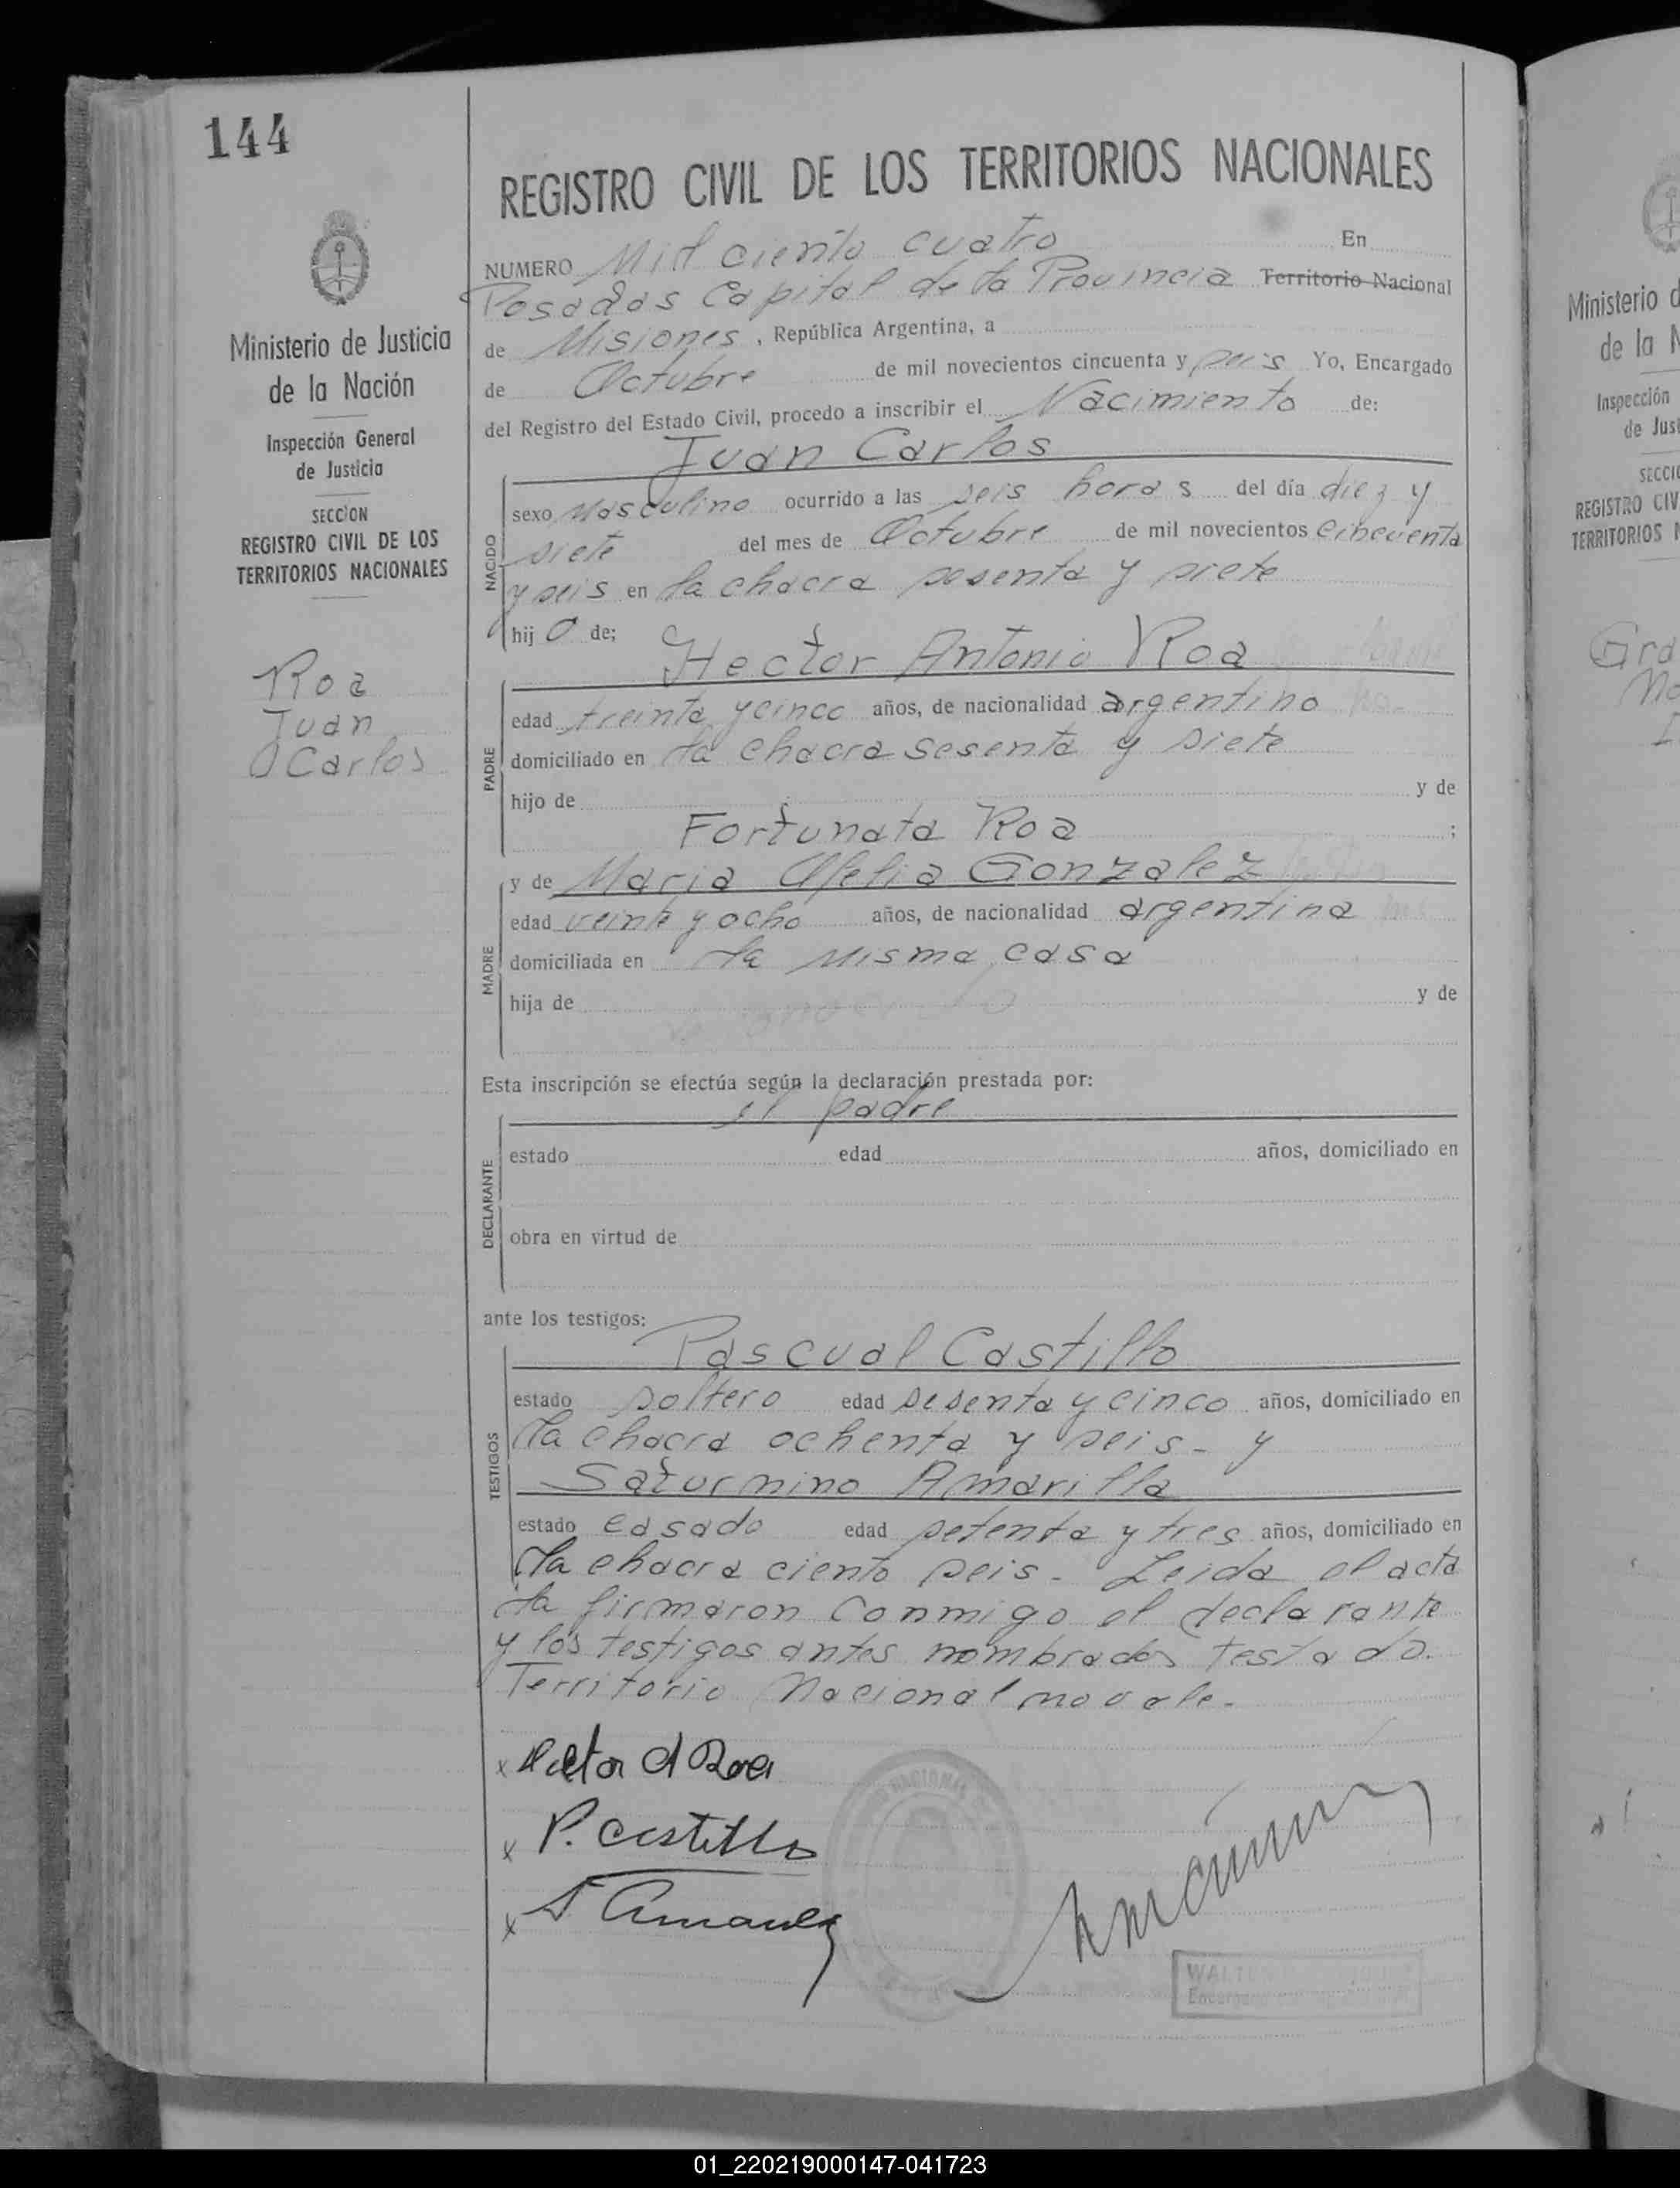 144
REGISTRO CIVIL DE LOS TERRITORIOS NACIONALES
NUMERO Mil ciento cuatro En
Posadas Capital de la Provincia Territorio Nacional
de Misiones, República Argentina, a
de Octubre de mil novecientos cincuenta y seis Yo, Encargado
del Registro del Estado Civil, procedo a inscribir el Nacimiento de:
Juan Carlos
NACIDO
sexo Masculino ocurrido a las seis horas del día diez y
siete del mes de Octubre de mil novecientos cincuenta
y seis en la chacra sesenta y siete
hijo de;
Hector Antonio Roa
PADRE
edad treinta y cinco años, de nacionalidad argentino
domiciliado en la chacra sesenta y siete
hijo de y de
Fortunata Roa ;
y de Maria Ofelia Gonzalez
MADRE
edad veinte y ocho años, de nacionalidad argentina
domiciliada en la misma casa
hija de y de
Esta inscripción se efectúa según la declaración prestada por:
el padre
DECLARANTE
estado edad años, domiciliado en
obra en virtud de
ante los testigos:
Pascual Castillo
TESTIGOS
estado soltero edad sesenta y cinco años, domiciliado en
la chacra ochenta y seis - y
Saturnino Amarilla
estado casado edad setenta y tres años, domiciliado en
la chacra ciento seis - Leida el acta
la firmaron conmigo el declarante
y los testigos antes nombrados testado.
Territorio Nacional no vale -
x Hector A Roa
x P. Castillo
x S Amarilla
WALTER
Ministerio de Justicia
de la Nación
Inspección General
de Justicia
SECCION
REGISTRO CIVIL DE LOS
TERRITORIOS NACIONALES
Roa
Juan
Carlos
Ministerio d
de la N
Inspección
de Just
SECCIO
REGISTRO CIV
TERRITORIOS N
Gra
01_220219000147-041723